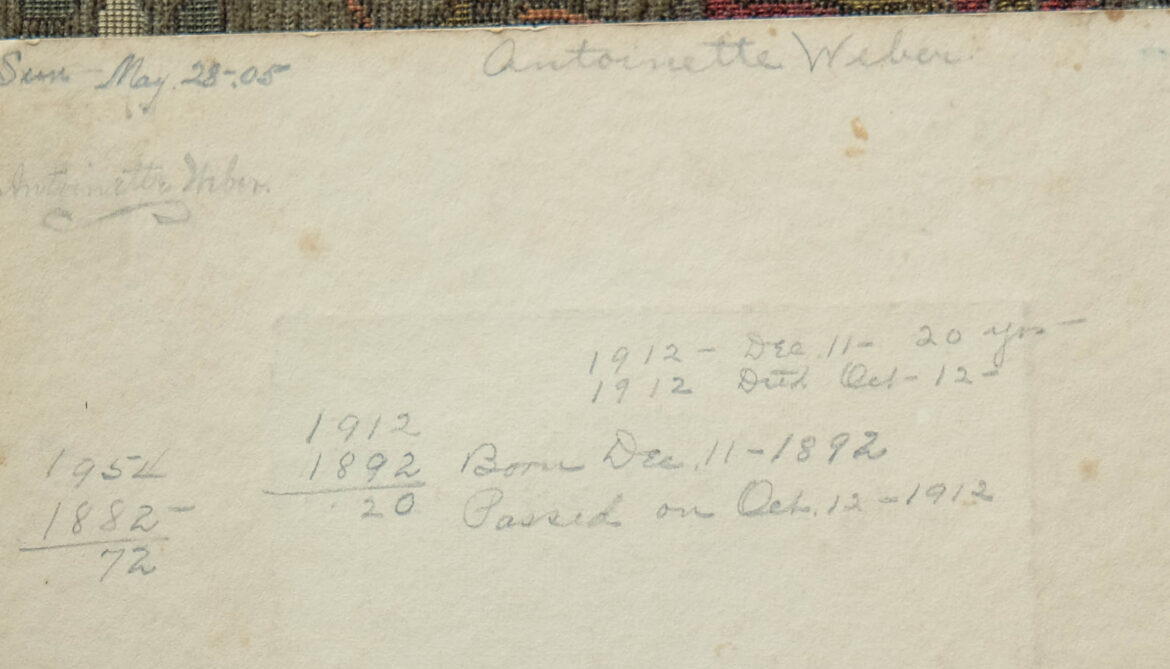 Sun - May. 28-.05
Antoinette Weber
Antoinette Weber.
1912 - Dec. 11 - 20 yrs -
1912 Oct - 12 -
1912
1892
20
Born Dec. 11 - 1892
Passed on Oct. 12 - 1912
1954
1882 -
72